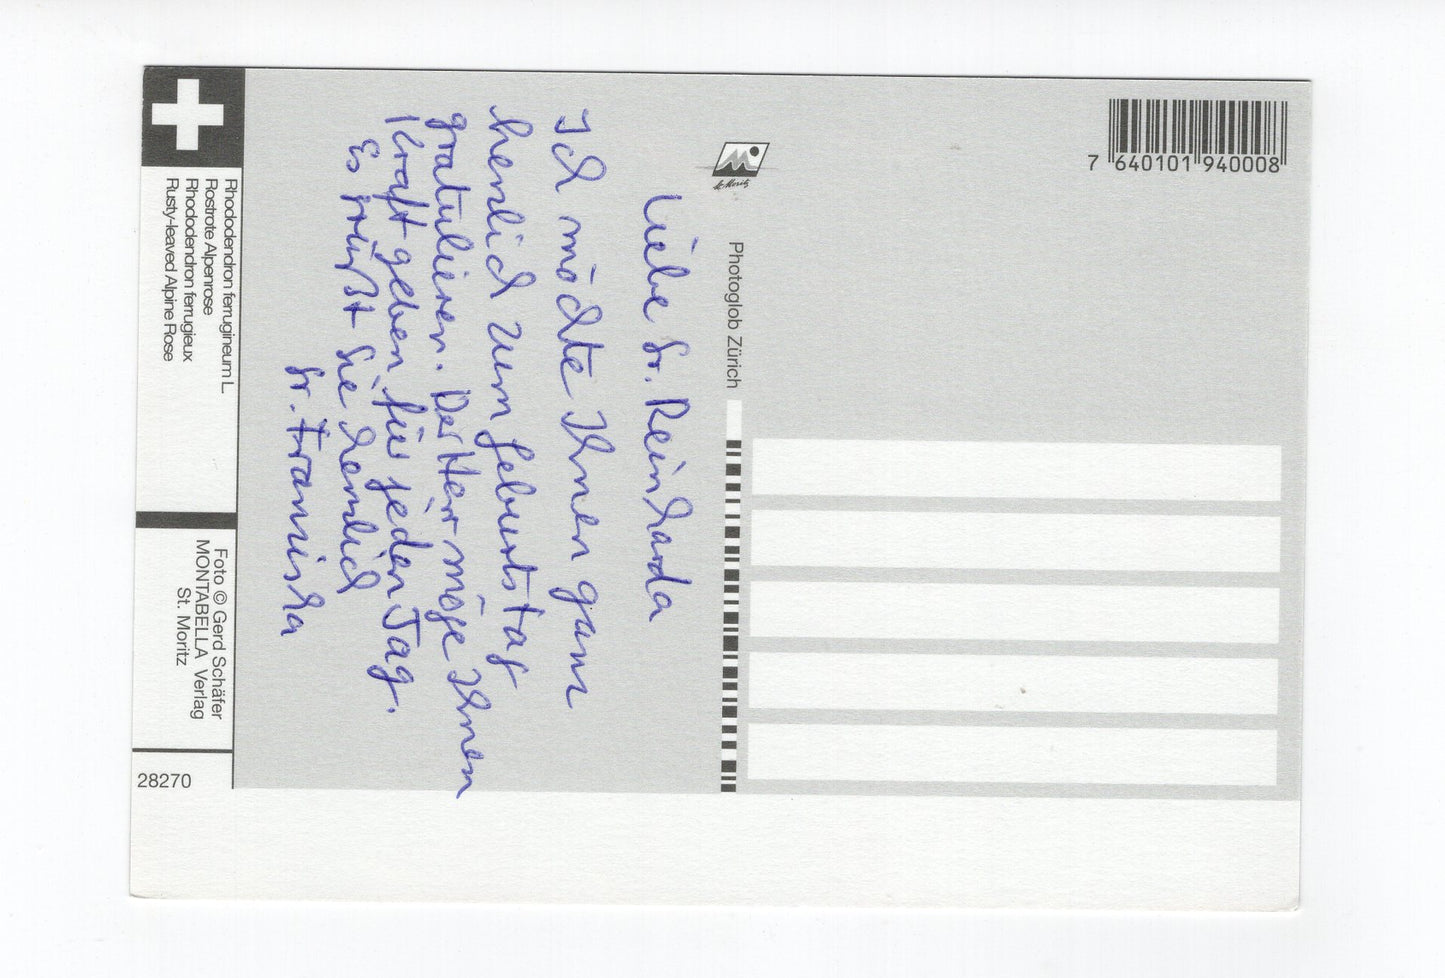 Liebe Sr. Reinharda
Ich möchte Ihnen ganz
herzlich zum Geburtstag
gratulieren. Der Herr möge Ihnen
Kraft geben, für jeden Tag.
Es grüßt Sie herzlich
Sr. Franziska
Rhododendron ferrugineum L.
Rostrote Alpenrose
Rhododendron ferrugieux
Rusty-leaved Alpine Rose
Foto © Gerd Schäfer
MONTABELLA Verlag
St. Moritz
28270
St. Moritz
Photoglob Zürich
7 640101 940008